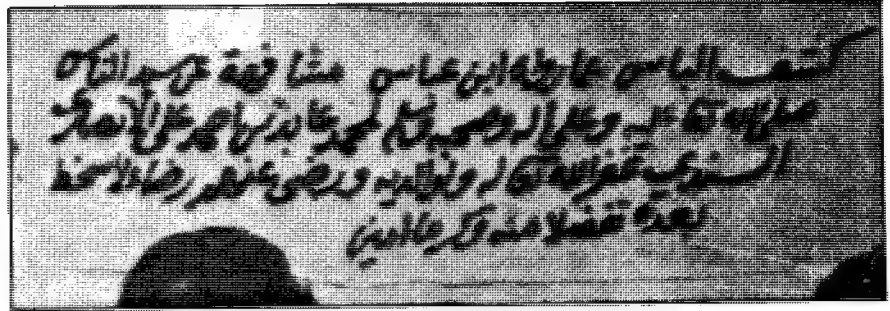 كشف الباس عما رواه ابن عباس مشافهة عن سيد الناس
صلى الله تعالى عليه وعلى اله وصحبه وسلم لمحمد عابد بن احمد علي الانصاري
السندي غفر الله تعالى له ولوالديه ورضي عنهم رضاء لا سخط
بعده تفضلا منه وكرما امين